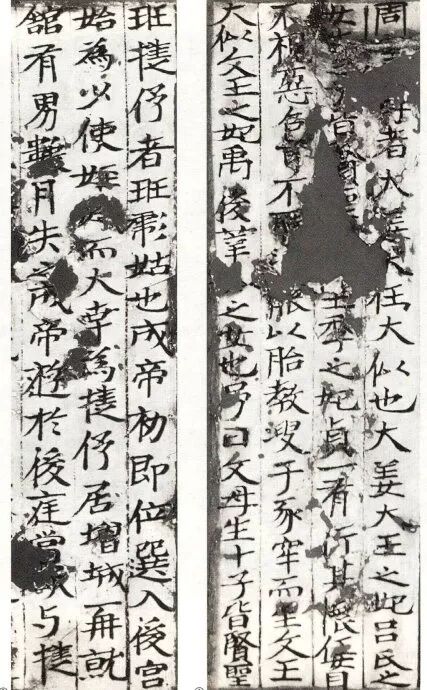 周母者大姜任大似也大姜大王之妃呂氏之
女賢王季之妃貞一有行其懷任目
不視惡色耳不能以胎教溲于豕牢而生文王
大似文王之妃禹後莘之女也号曰文母生十子皆賢聖
班揵伃者班彪姑也成帝初即位選入後宮
始為少使而大幸為揵伃居增城再就
舘有男數月失之成帝遊於後庭嘗欲与揵